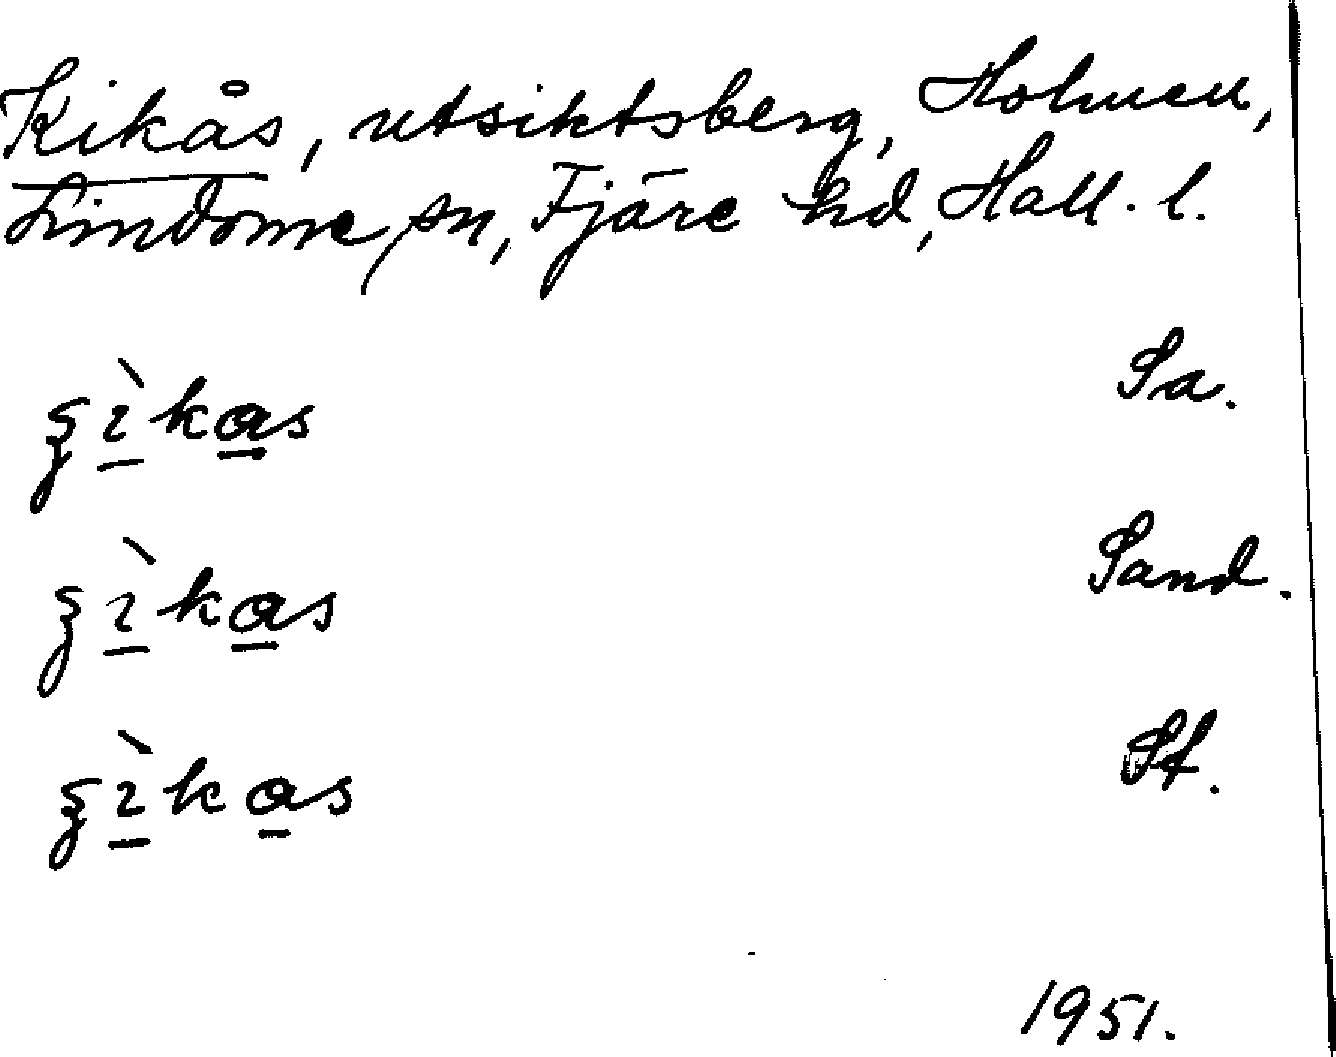 Kikås, utsiktsberg, Holmen,
Lindome sn, Fjäre hd, Hall. l.
ʒ̀ıkas Sa.
ʒ̀ıkas Sand.
ʒ̀ıkas St.
1951.